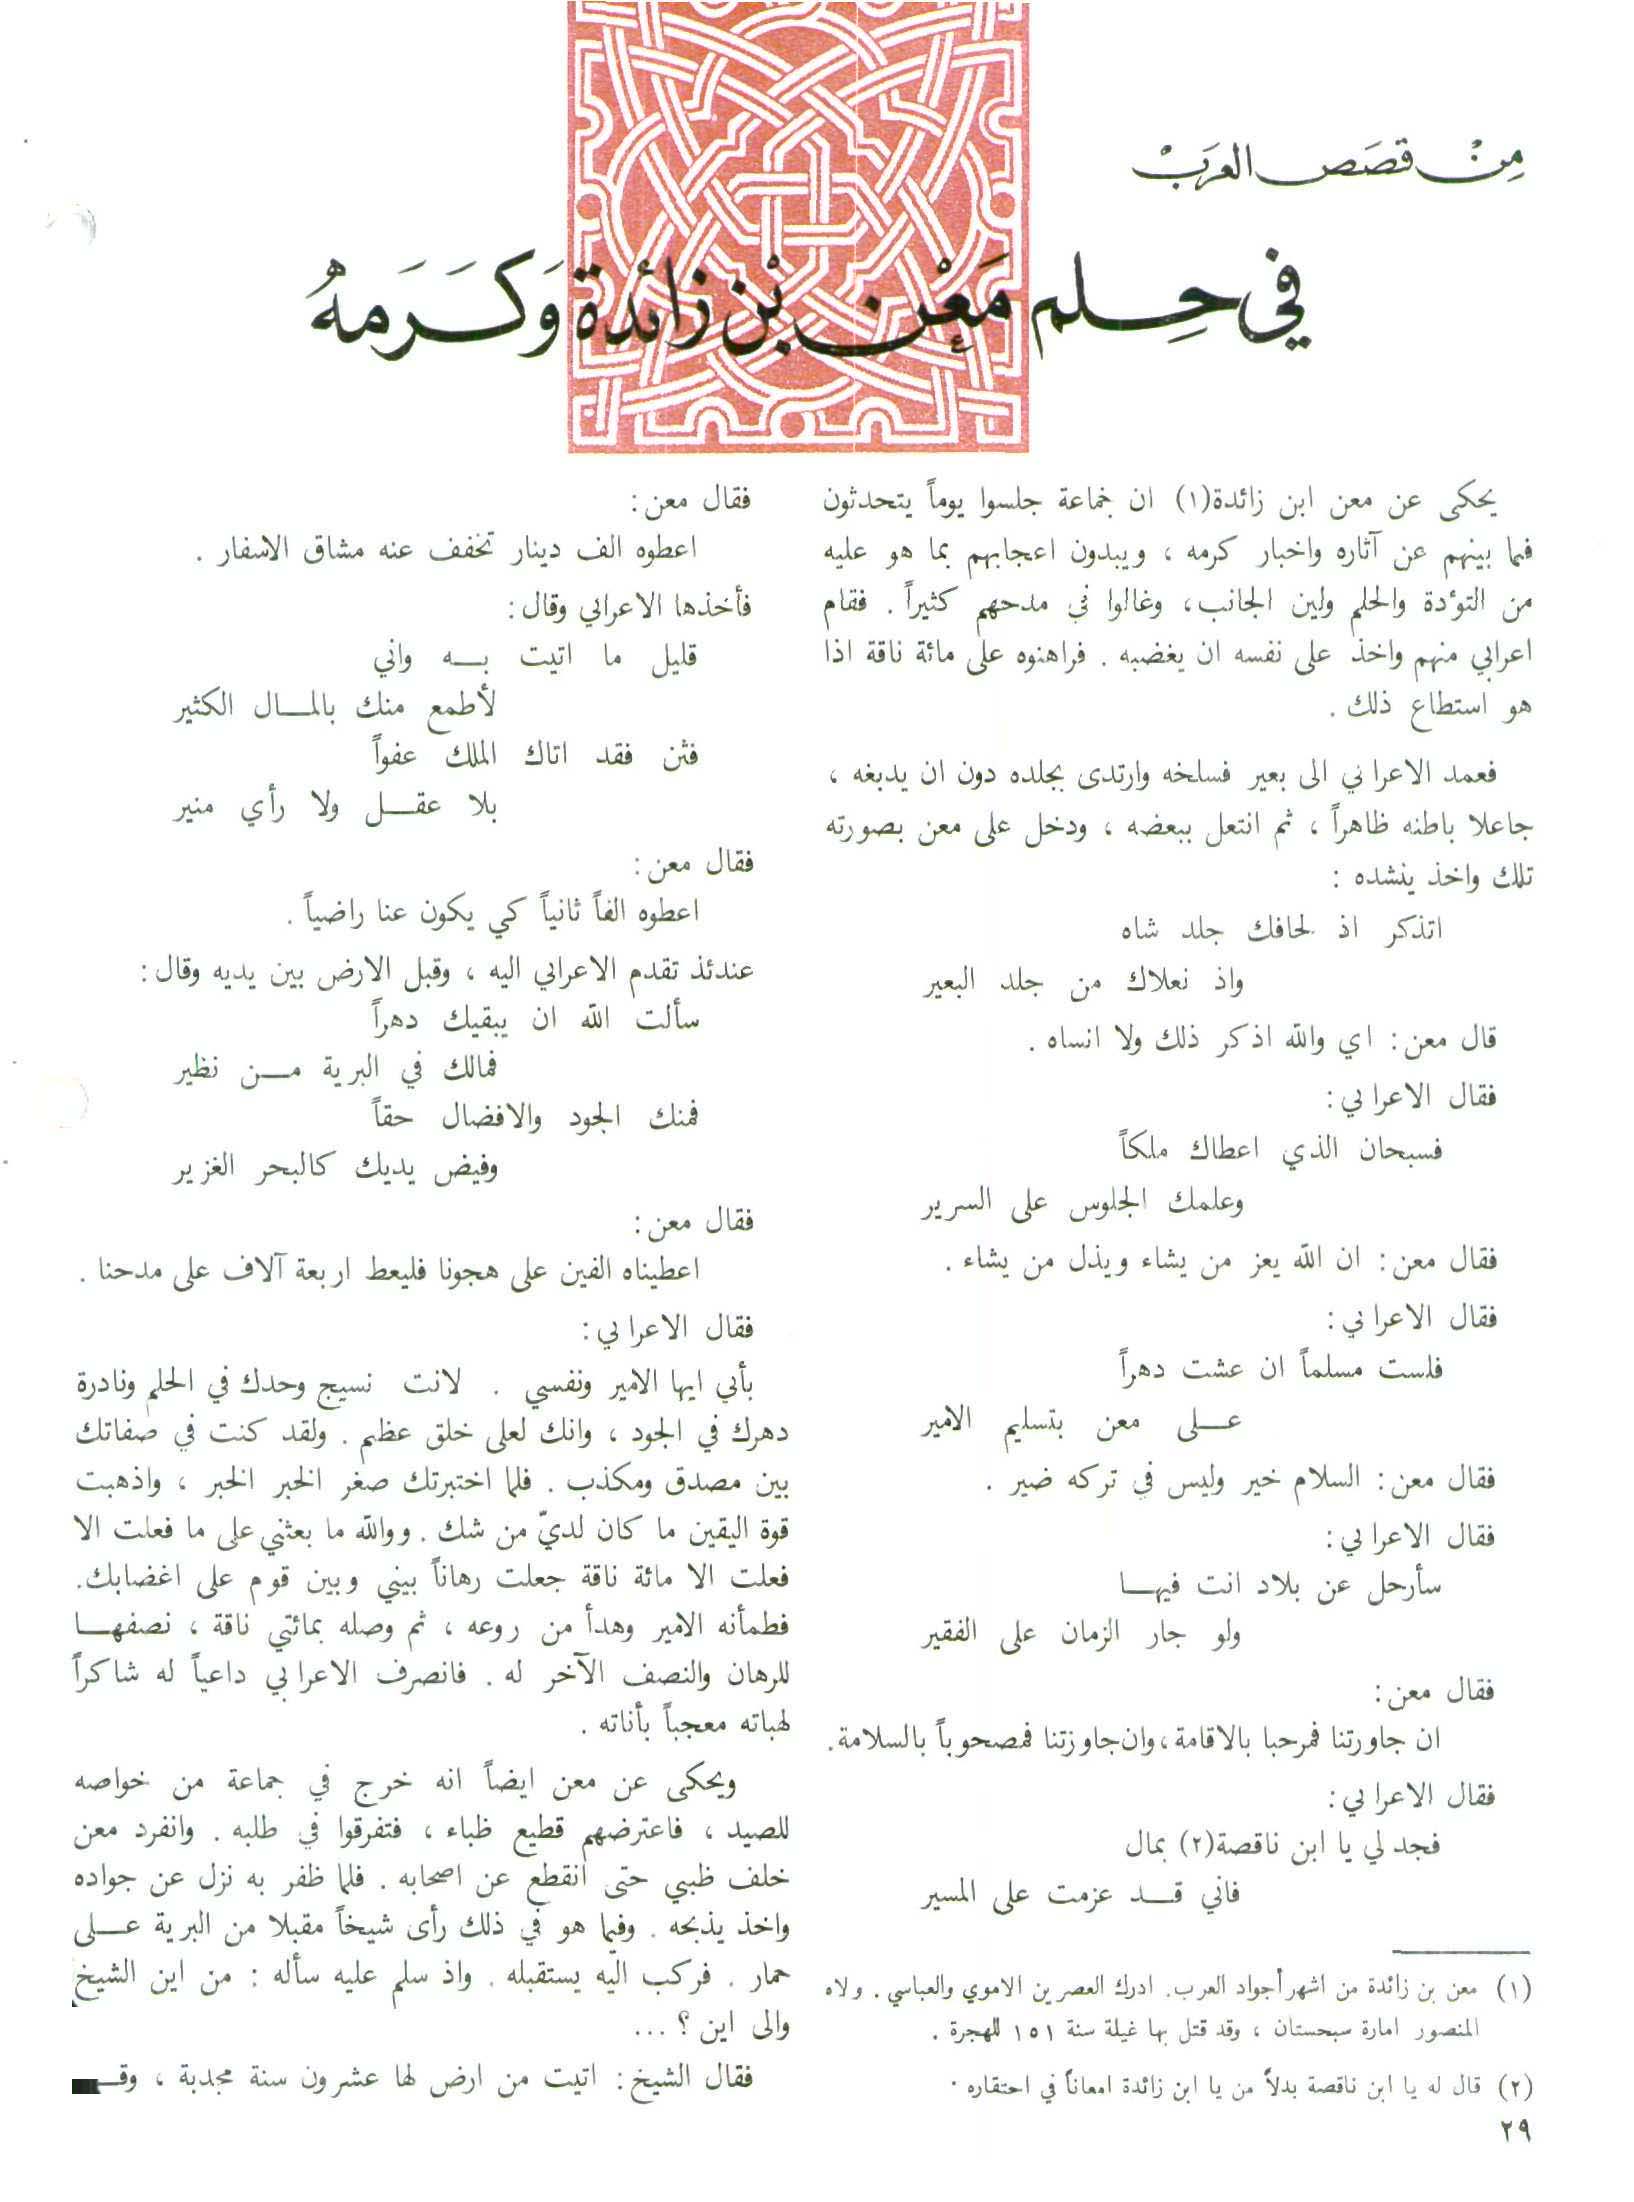 مِنْ قصَص العرَبْ
في حِلم مَعْن بْن زائدة وَكَرَمهُ
يحكى عن معن ابن زائدة(١) ان جماعة جلسوا يوماً يتحدثون
فيما بينهم عن آثاره واخبار كرمه ، ويبدون اعجابهم بما هو عليه
من التؤدة والحلم ولين الجانب، وغالوا في مدحهم كثيراً . فقام
اعرابي منهم واخذ على نفسه ان يغضبه . فراهنوه على مائة ناقة اذا
هو استطاع ذلك .
فعمد الاعرابي الى بعير فسلخه وارتدى بجلده دون ان يدبغه ،
جاعلا باطنه ظاهراً ، ثم انتعل ببعضه ، ودخل على معن بصورته
تلك واخذ ينشده :
اتذكر اذ لحافك جلد شاه
واذ نعلاك من جلد البعير
قال معن: اي والله اذكر ذلك ولا انساه .
فقال الاعرابي:
فسبحان الذي اعطاك ملكاً
وعلمك الجلوس على السرير
فقال معن: ان الله يعز من يشاء ويذل من يشاء .
فقال الاعرابي:
فلست مسلماً ان عشت دهراً
عـلى معن بتسليم الامير
فقال معن: السلام خير وليس في تركه ضير .
فقال الاعرابي:
سأرحل عن بلاد انت فيهـا
ولو جار الزمان على الفقير
فقال معن:
ان جاورتنا فمرحبا بالاقامة،وان جاوزتنا فمصحوباً بالسلامة.
فقال الاعرابي:
فجد لي يا ابن ناقصة(٢) بمال
فاني قـد عزمت على المسير
(١) معن بن زائدة من اشهر أجواد العرب. ادرك العصرين الاموي والعباسي . ولاه
المنصور امارة سبحستان ، وقد قتل بها غيلة سنة ١٥١ للهجرة .
(٢) قال له يا ابن ناقصة بدلاً من يا ابن زائدة امعاناً في احتقاره .
٢٩
فقال معن:
اعطوه الف دينار تخفف عنه مشاق الاسفار .
فأخذها الاعرابي وقال:
قليل ما اتيت بـه واني
لأطمع منك بالمـال الكثير
فثن فقد اتاك الملك عفواً
بلا عقـل ولا رأي منير
فقال معن:
اعطوه الفاً ثانياً كي يكون عنا راضياً .
عندئذ تقدم الاعرابي اليه ، وقبل الارض بين يديه وقال:
سألت الله ان يبقيك دهراً
فمالك في البرية مـن نظير
فمنك الجود والافضال حقاً
وفيض يديك كالبحر الغزير
فقال معن:
اعطيناه الفين على هجونا فليعط اربعة آلاف على مدحنا .
فقال الاعرابي:
بأبي ايها الامير ونفسي . لانت نسيج وحدك في الحلم ونادرة
دهرك في الجود ، وانك لعلى خلق عظيم . ولقد كنت في صفاتك
بين مصدق ومكذب . فلما اختبرتك صغر الخبر الخبر ، واذهبت
قوة اليقين ما كان لديّ من شك . ووالله ما بعثني على ما فعلت الا
فعلت الا مائة ناقة جعلت رهاناً بيني وبين قوم على اغضابك.
فطمأنه الامير وهدأ من روعه ، ثم وصله بمائتي ناقة ، نصفهـا
للرهان والنصف الآخر له . فانصرف الاعرابي داعياً له شاكراً
لهباته معجباً بأناته .
ويحكى عن معن ايضاً انه خرج في جماعة من خواصه
للصيد ، فاعترضهم قطيع ظباء ، فتفرقوا في طلبه . وانفرد معن
خلف ظبي حتى انقطع عن اصحابه . فلما ظفر به نزل عن جواده
واخذ يذبحه . وفيما هو في ذلك رأى شيخاً مقبلا من البرية عـلى
حمار . فركب اليه يستقبله . واذ سلم عليه سأله : من اين الشيخ
والى اين ؟ ...
فقال الشيخ: اتيت من ارض لها عشرون سنة مجدبة ،